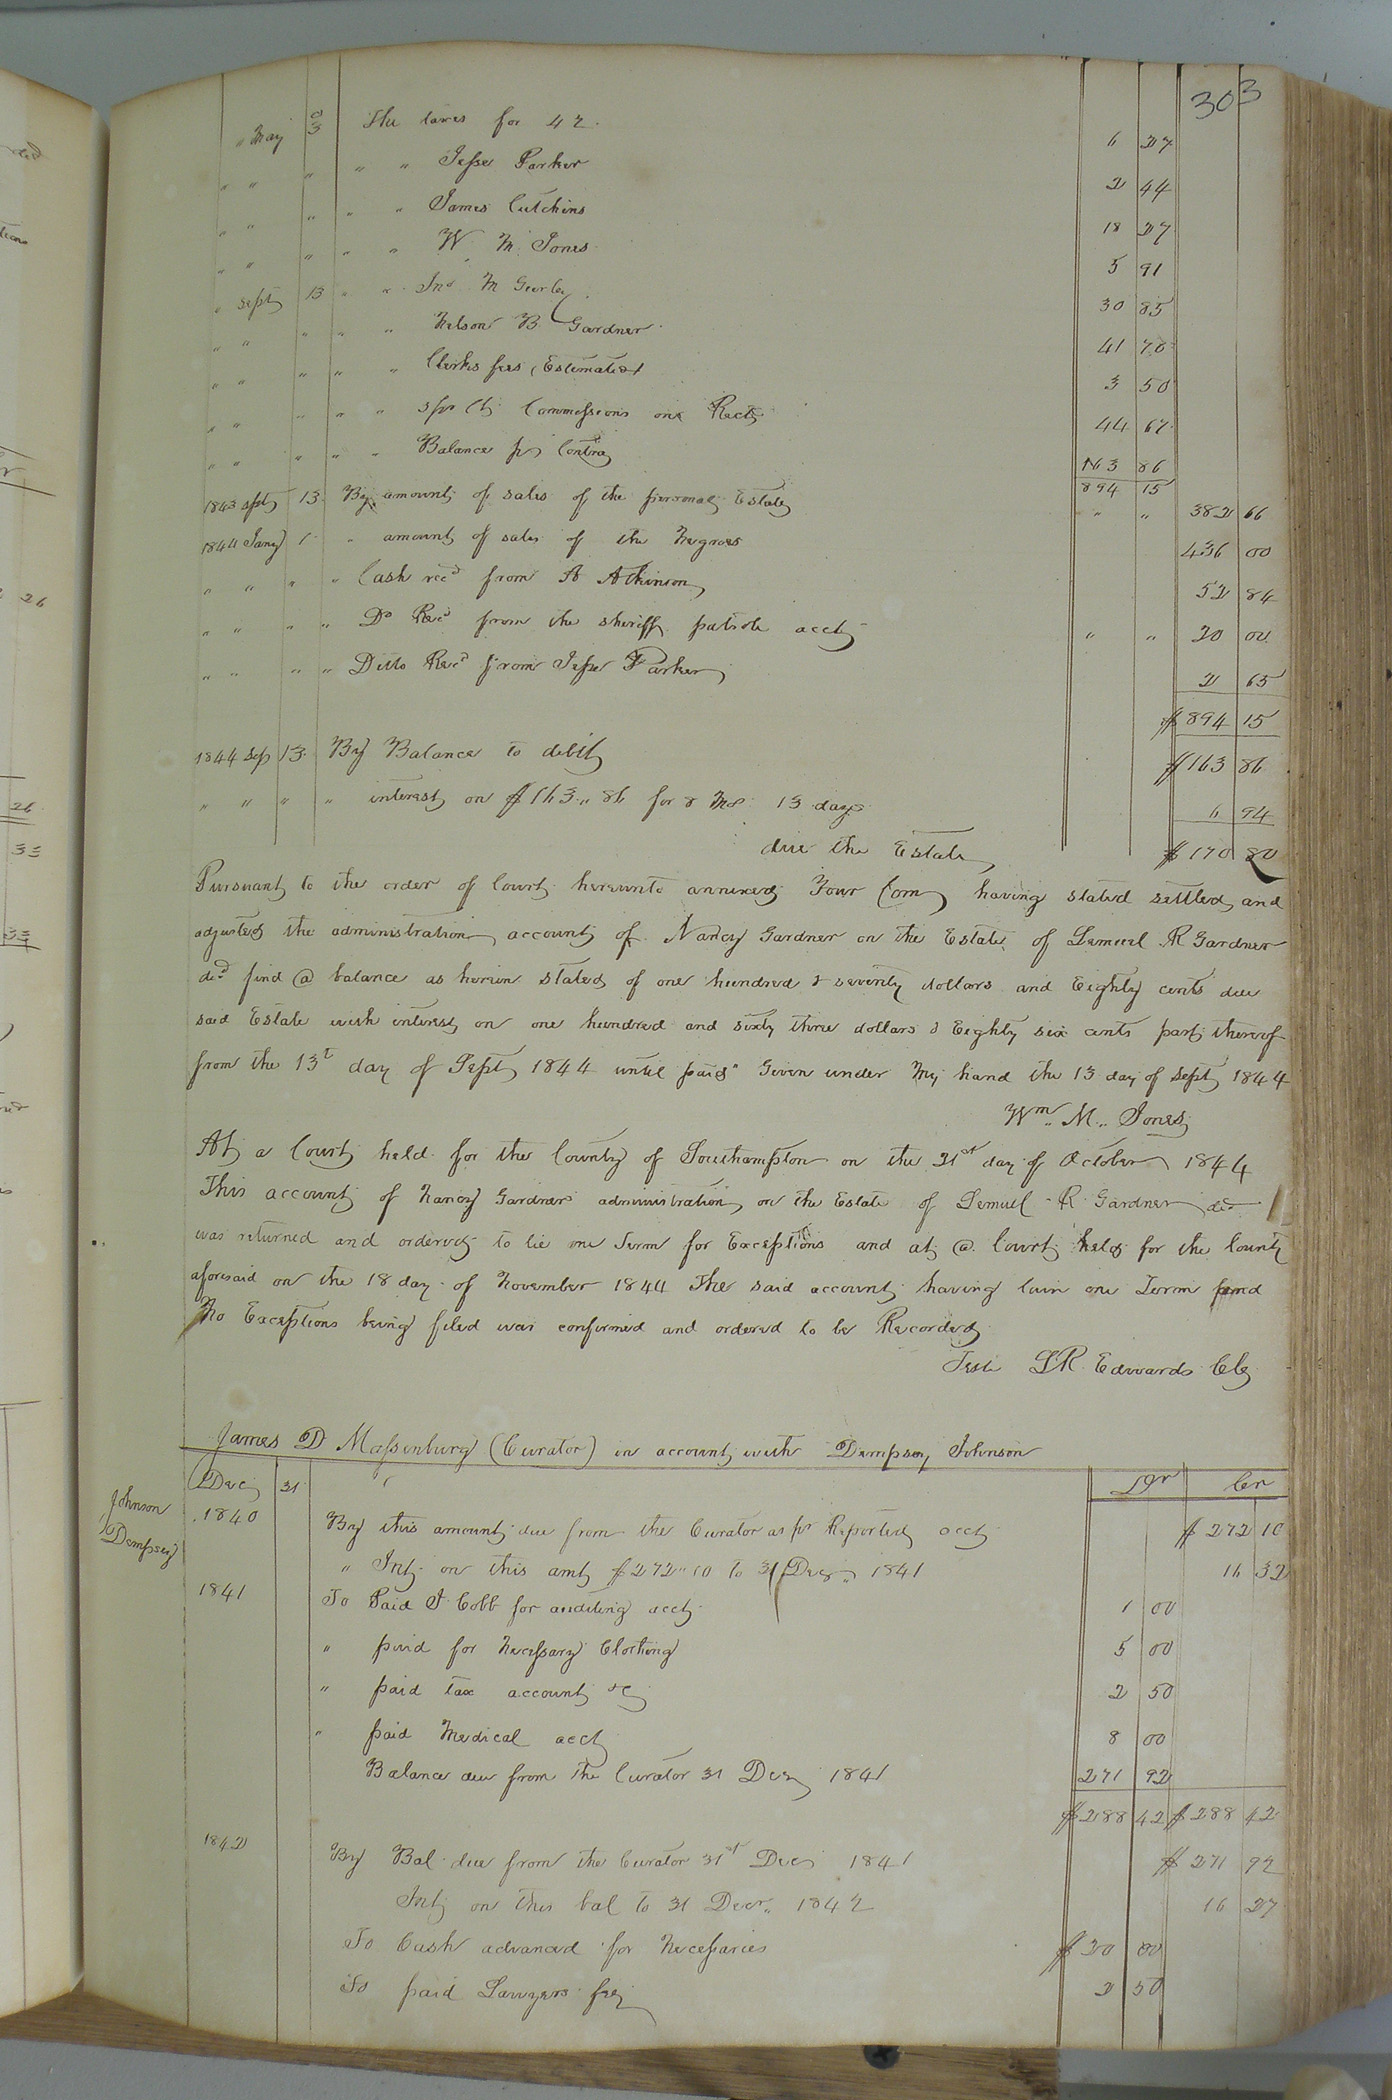 303
" May 3 The taxes for 42 6 27
" " " " " Jesse Parker 2 44
" " " " " James Cutchins 18 27
" " " " " W M Jones 5 91
" Sept 13 " " Jno M Gurley 30 85
" " " " " Nelson B Gardner 41 70
" " " " " Clerks fees (Estimated 3 50
" " " " " 5 pr Ct Commissions on Rects 44 67
" " " " " Balance pr Contra 163 86
894 15
1843 Sept 13 By amount of sales of the personal Estate " " 382 66
1844 Jany 1 " amount of sales of the Negroes 436 00
" " " " Cash recd from A Atkinson 52 84
" " " " Do Recd from the sheriff patrole acct " " 20 00
" " " " Ditto Recd from Jesse Parker 2 65
$894 15
1844 Sep 13 By Balance to debit $163 86
" " " " interest on $163 " 86 for 8 Mo 13 days 6 94
due the Estate $170 80
Pursuant to the order of Court hereunto annexed Your Com having stated settled and
adjusted the administration account of Nancy Gardner on the Estate of Lemuel R Gardner
decd find @ balance as herein stated of one hundred & seventy dollars and Eighty cents due
said Estate with interest on one hundred and sixty three dollars & Eighty six cents part thereof
from the 13t day of Sept 1844 until paid Given under My hand the 13 day of Sept 1844
Wm. M. Jones
At a Court held for the County of Southampton on the 21st day of October 1844
This account of Nancy Gardners administration on the Estate of Lemuel R Gardner decd
was returned and ordered to lie one Term for Exceptions and at @ Court held for the County
aforesaid on the 18 day of November 1844 The said account having lain one Term and
No Exceptions being filed was confirmed and ordered to be Recorded
Teste L R Edwards Clk
James D Massenburg (Curator) in account with Dempsey Johnson
Johnson
Dempsey
Dec 31 Dr Cr
1840 By this amount due from the Curator as pr Reported acct $272 10
" Int on this amt $272 " 10 to 31 Decr " 1841 16 32
1841 To Paid J Cobb for auditing acct 1 00
" paid for Necessary Clothing 5 00
" paid tax account &c 2 50
" paid Medical acct 8 00
Balance due from the Curator 31 Dec 1841 271 92
$288 42 $288 42
1842 By Bal due from the Curator 31st Dec 1841 $271 92
Int on this bal to 31 Decr. 1842 16 27
To Cash advanced for Necessaries $20 00
To paid Lawyers fee 2 50